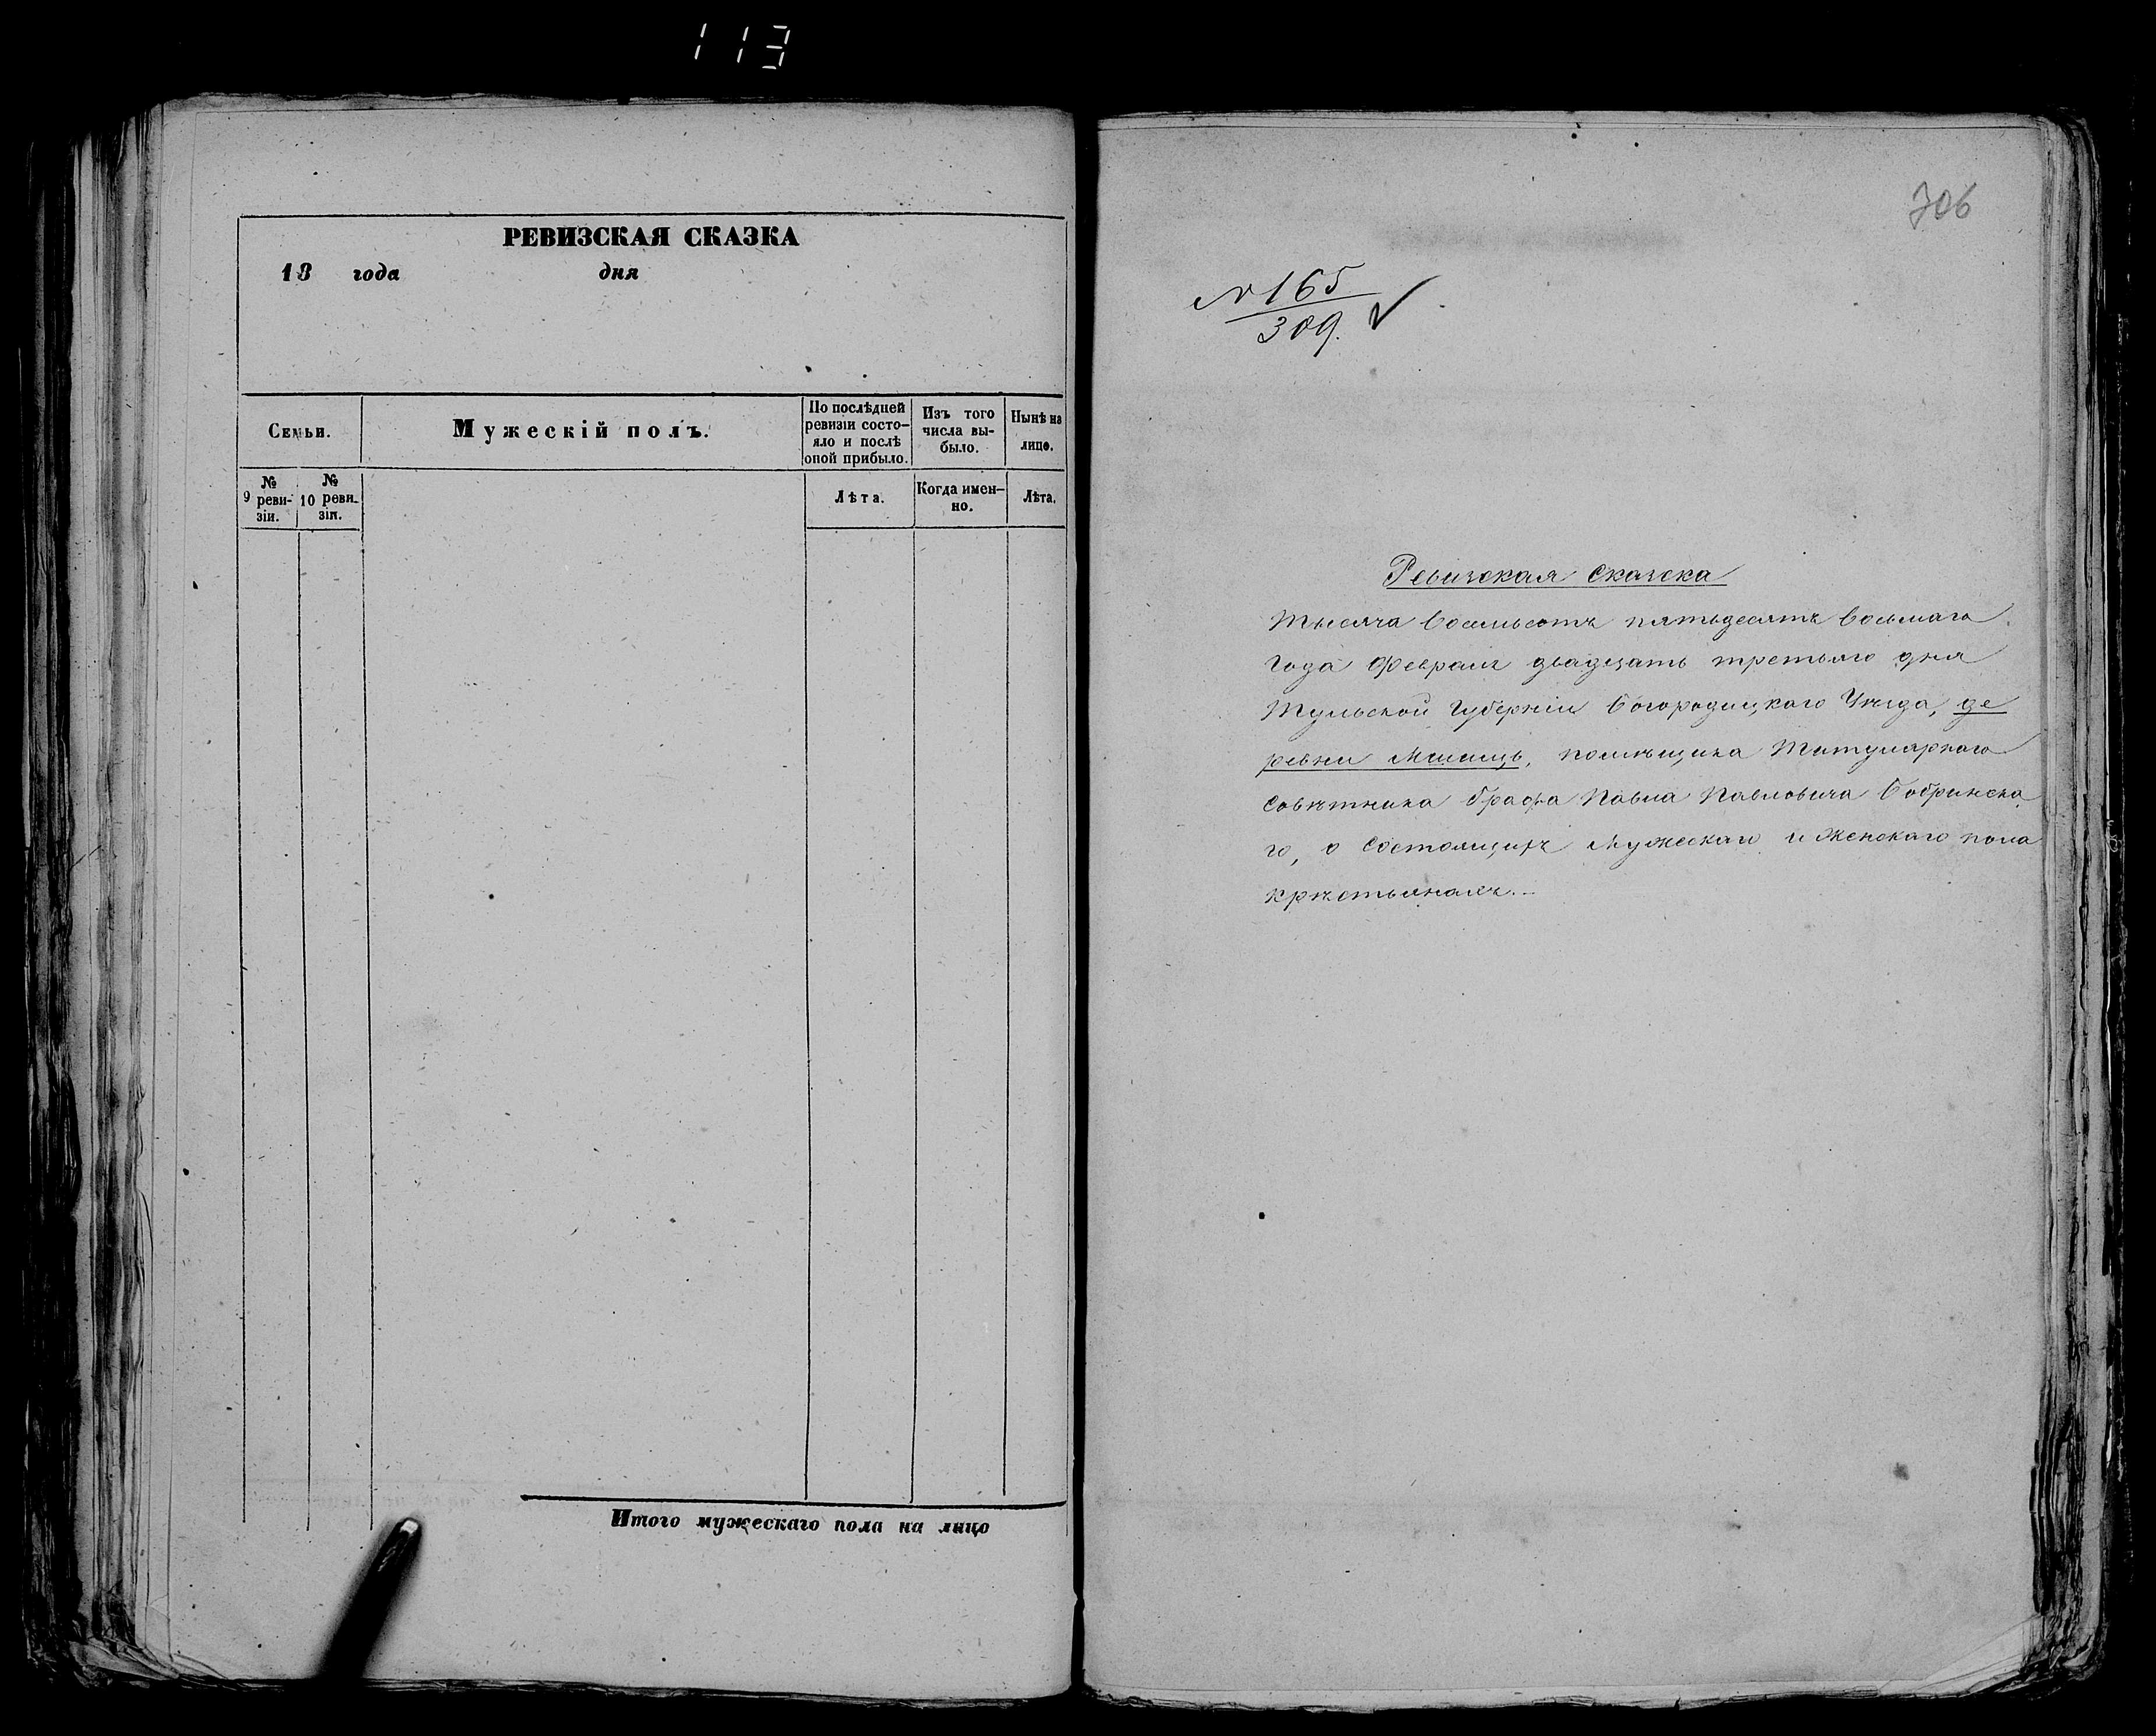 113
РЕВИЗСКАЯ СКАЗКА
18 года дня
Семьи.
Мужескій полъ.
По послѣдней
ревизіи состо-
яло и послѣ
оной прибыло.
Изъ того
числа вы-
было.
Нынѣ на
лицо.
№
9 реви-
зіи.
№
10 реви-
зіи.
Лѣта.
Когда имен-
но.
Лѣта.
Итого мужескаго пола на лицо
706
№ 165
309.
Ревизская сказска
Тысяча восемьсотъ пятьдесятъ восьмаго
года Февраля двадцать третьяго дня
Тульской Губерніи Богородицкаго Уѣзда, де
ревни помѣщика Титулярнаго
Совѣтника Графа Павла Павловича Бобринска
го, о состоящихъ мужескаго и женскаго пола
крѣстьянахъ.-